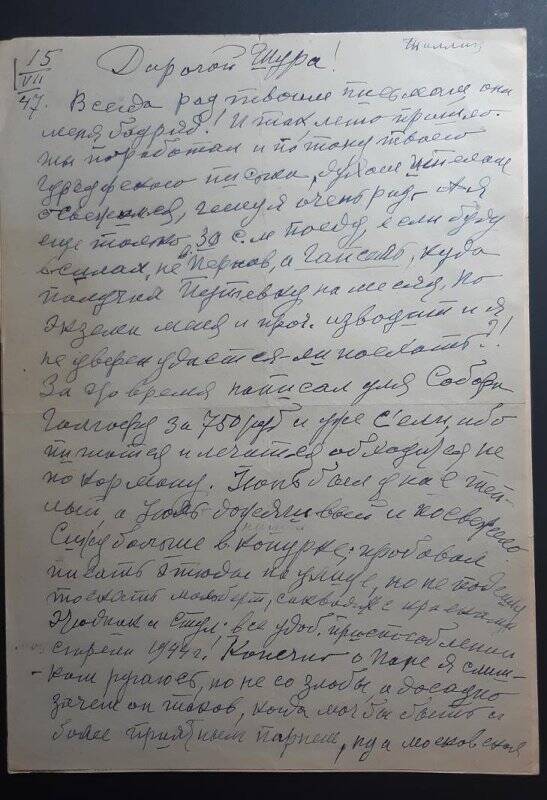 15
VII
47.
Таллин
Дорогой Шура!
Всегда рад твоим письмам они
меня бодрят! Итак лето прошло.
ты поработал и потому твоего
письма, духом и телом
освежился, чему я очень рад. А я
еще только 30 с.м поеду, если буду
в силах, не Пернов, а Гапсаль, куда
получил путевку на месяц. Но
экзема меня и проч. изводит и я
не уверен удастся-ли поехать?!
За это время написал для Собора
Голгофу за 750 руб и уже с'ели, ибо
питаться и лечиться обходится не
по карману. Июнь был у нас теп-
лый а Июль дождли-вый и посвежело.
Сижу больше в конурке; пробовал
писать этюды на улице, но не под силу
таскать мольберт, саквояж с красками
этюдник и стул. все удоб. приспособления
сгорели 1944 г! Конечно о Паре я слиш-
-ком ругаюсь, но не со злобы, а досадно
зачем он таков, когда мог бы быть и
более приятным парнем, ну а московская